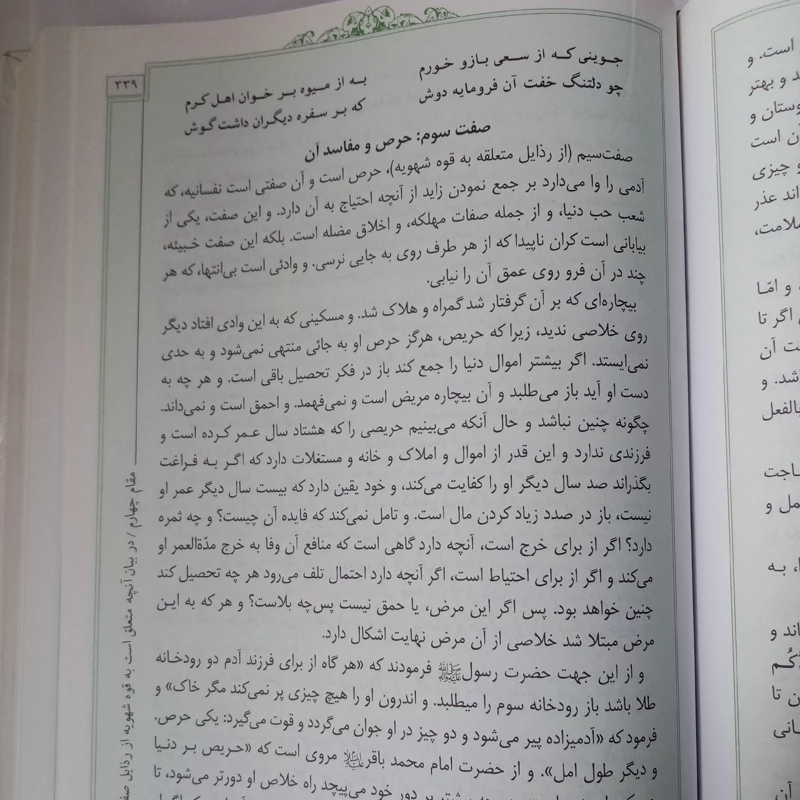 ۳۳۹
جوینی که از سعی بازو خورم
به از میوه بر خوان اهل کرم
چو دلتنگ خفت آن فرومایه دوش
که بر سفره دیگران داشت گوش
صفت سوم: حرص و مفاسد آن
صفت‌سیم (از رذایل متعلقه به قوه شهویه)، حرص است و آن صفتی است نفسانیه، که
آدمی را وا می‌دارد بر جمع نمودن زاید از آنچه احتیاج به آن دارد. و این صفت، یکی از
شعب حب دنیا، و از جمله صفات مهلکه، و اخلاق مضله است. بلکه این صفت خبیثه،
بیابانی است کران ناپیدا که از هر طرف روی به جایی نرسی. و وادئی است بی‌انتها، که هر
چند در آن فرو روی عمق آن را نیابی.
بیچاره‌ای که بر آن گرفتار شد گمراه و هلاک شد. و مسکینی که به این وادی افتاد دیگر
روی خلاصی ندید، زیرا که حریص، هرگز حرص او به جائی منتهی نمی‌شود و به حدی
نمی‌ایستد. اگر بیشتر اموال دنیا را جمع کند باز در فکر تحصیل باقی است. و هر چه به
دست او آید باز می‌طلبد و آن بیچاره مریض است و نمی‌فهمد. و احمق است و نمی‌داند.
چگونه چنین نباشد و حال آنکه می‌بینیم حریصی را که هشتاد سال عمر کرده است و
فرزندی ندارد و این قدر از اموال و املاک و خانه و مستغلات دارد که اگر به فراغت
بگذراند صد سال دیگر او را کفایت می‌کند، و خود یقین دارد که بیست سال دیگر عمر او
نیست، باز در صدد زیاد کردن مال است. و تامل نمی‌کند که فایده آن چیست؟ و چه ثمره
دارد؟ اگر از برای خرج است، آنچه دارد گاهی است که منافع آن وفا به خرج مدّةالعمر او
می‌کند و اگر از برای احتیاط است، اگر آنچه دارد احتمال تلف می‌رود هر چه تحصیل کند
چنین خواهد بود. پس اگر این مرض، یا حمق نیست پس‌چه بلاست؟ و هر که به این
مرض مبتلا شد خلاصی از آن مرض نهایت اشکال دارد.
و از این جهت حضرت رسولﷺ فرمودند که «هر گاه از برای فرزند آدم دو رودخانه
طلا باشد باز رودخانه سوم را میطلبد. و اندرون او را هیچ چیزی پر نمی‌کند مگر خاک» و
فرمود که «آدمیزاده پیر می‌شود و دو چیز در او جوان می‌گردد و قوت می‌گیرد: یکی حرص.
و دیگر طول امل». و از حضرت امام محمد باقر مروی است که «حریص بر دنیا
بر دور خود می‌پیچد راه خلاص او دورتر می‌شود، تا
مقام چهارم / در بیان آنچه متعلق است به قوه شهویه از رذایل
است. و
و بهتر
وستان و
آن است
و چیزی
اند عذر
سلامت،
و امّا
اگر تا
ت آن
شد. و
بالفعل
حاجت
مل و
، به
اند و
کُم
ن تا
انی
آن